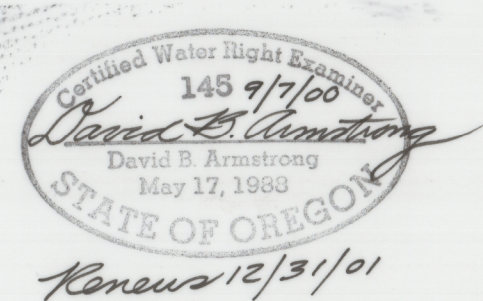 Certified Water Right Examiner
145 9/7/00
David B. Armstrong
David B. Armstrong
May 17, 1988
STATE OF OREGON
Renews 12/31/01